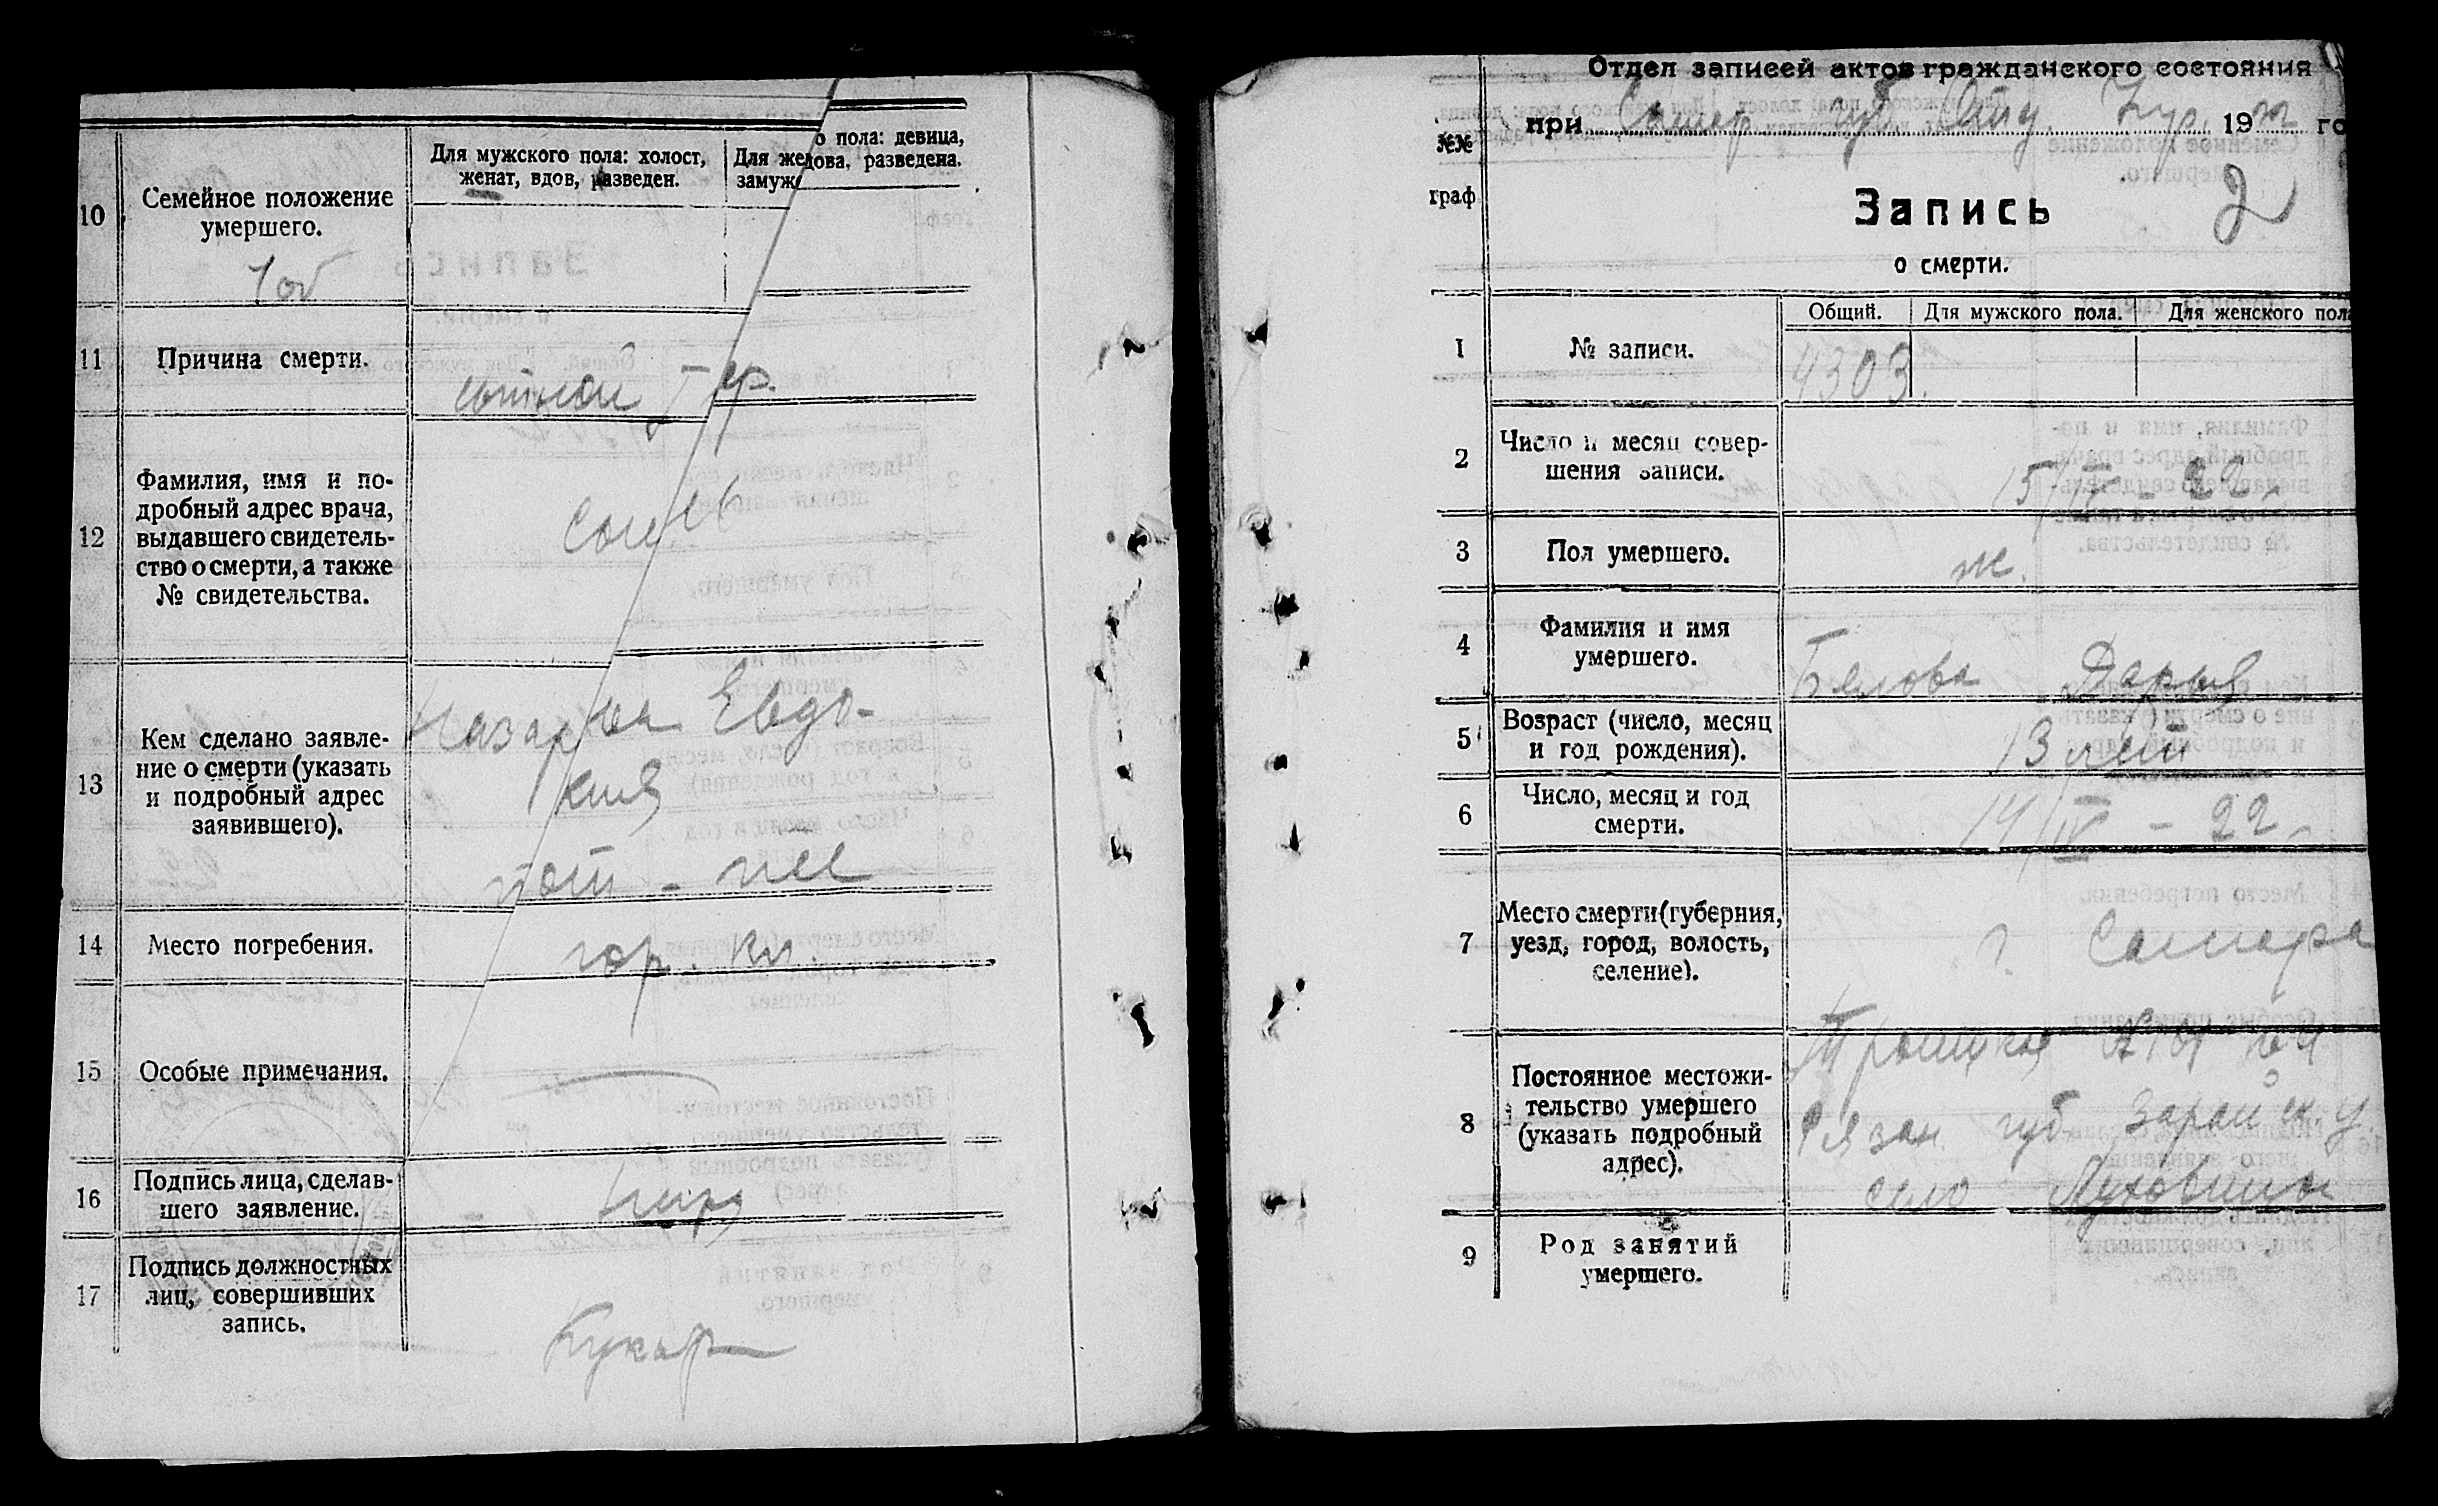 10
Семейное положение
умершего.
Для мужского пола: холост,
женат, вдов, разведен.
Для же
замуж
о пола: девица,
дова, разведена.
11
Причина смерти.
12
Фамилия, имя и по-
дробный адрес врача,
выдавшего свидетель-
ство о смерти, а также
№ свидетельства.
13
Кем сделано заявле-
ние о смерти (указать
и подробный адрес
заявившего).
Евдо-
кия
14
Место погребения.
гор. кл.
15
Особые примечания.
16
Подпись лица, сделав-
шего заявление.
17
Подпись должностных
лиц, совершивших
запись.
Отдел записей актов гражданского состояния
№№
граф
при Самар. губ. 19 го
Запись
2
о смерти.
Общий.
Для мужского пола.
Для женского пола
1
№ записи.
4303.
2
Число и месяц совер-
шения записи.
15/IV - 22
3
Пол умершего.
ж.
4
Фамилия и имя
умершего.
Белова Дарья
5
Возраст (число, месяц
и год рождения).
13 лет
6
Число, месяц и год
смерти.
14/IV - 22
7
Место смерти (губерния,
уезд, город, волость,
селение).
г. Самара
8
Постоянное местожи-
тельство умершего
(указать подробный
адрес).
Рязан. губ. Зарайск у.
село
9
Род занятий
умершего.